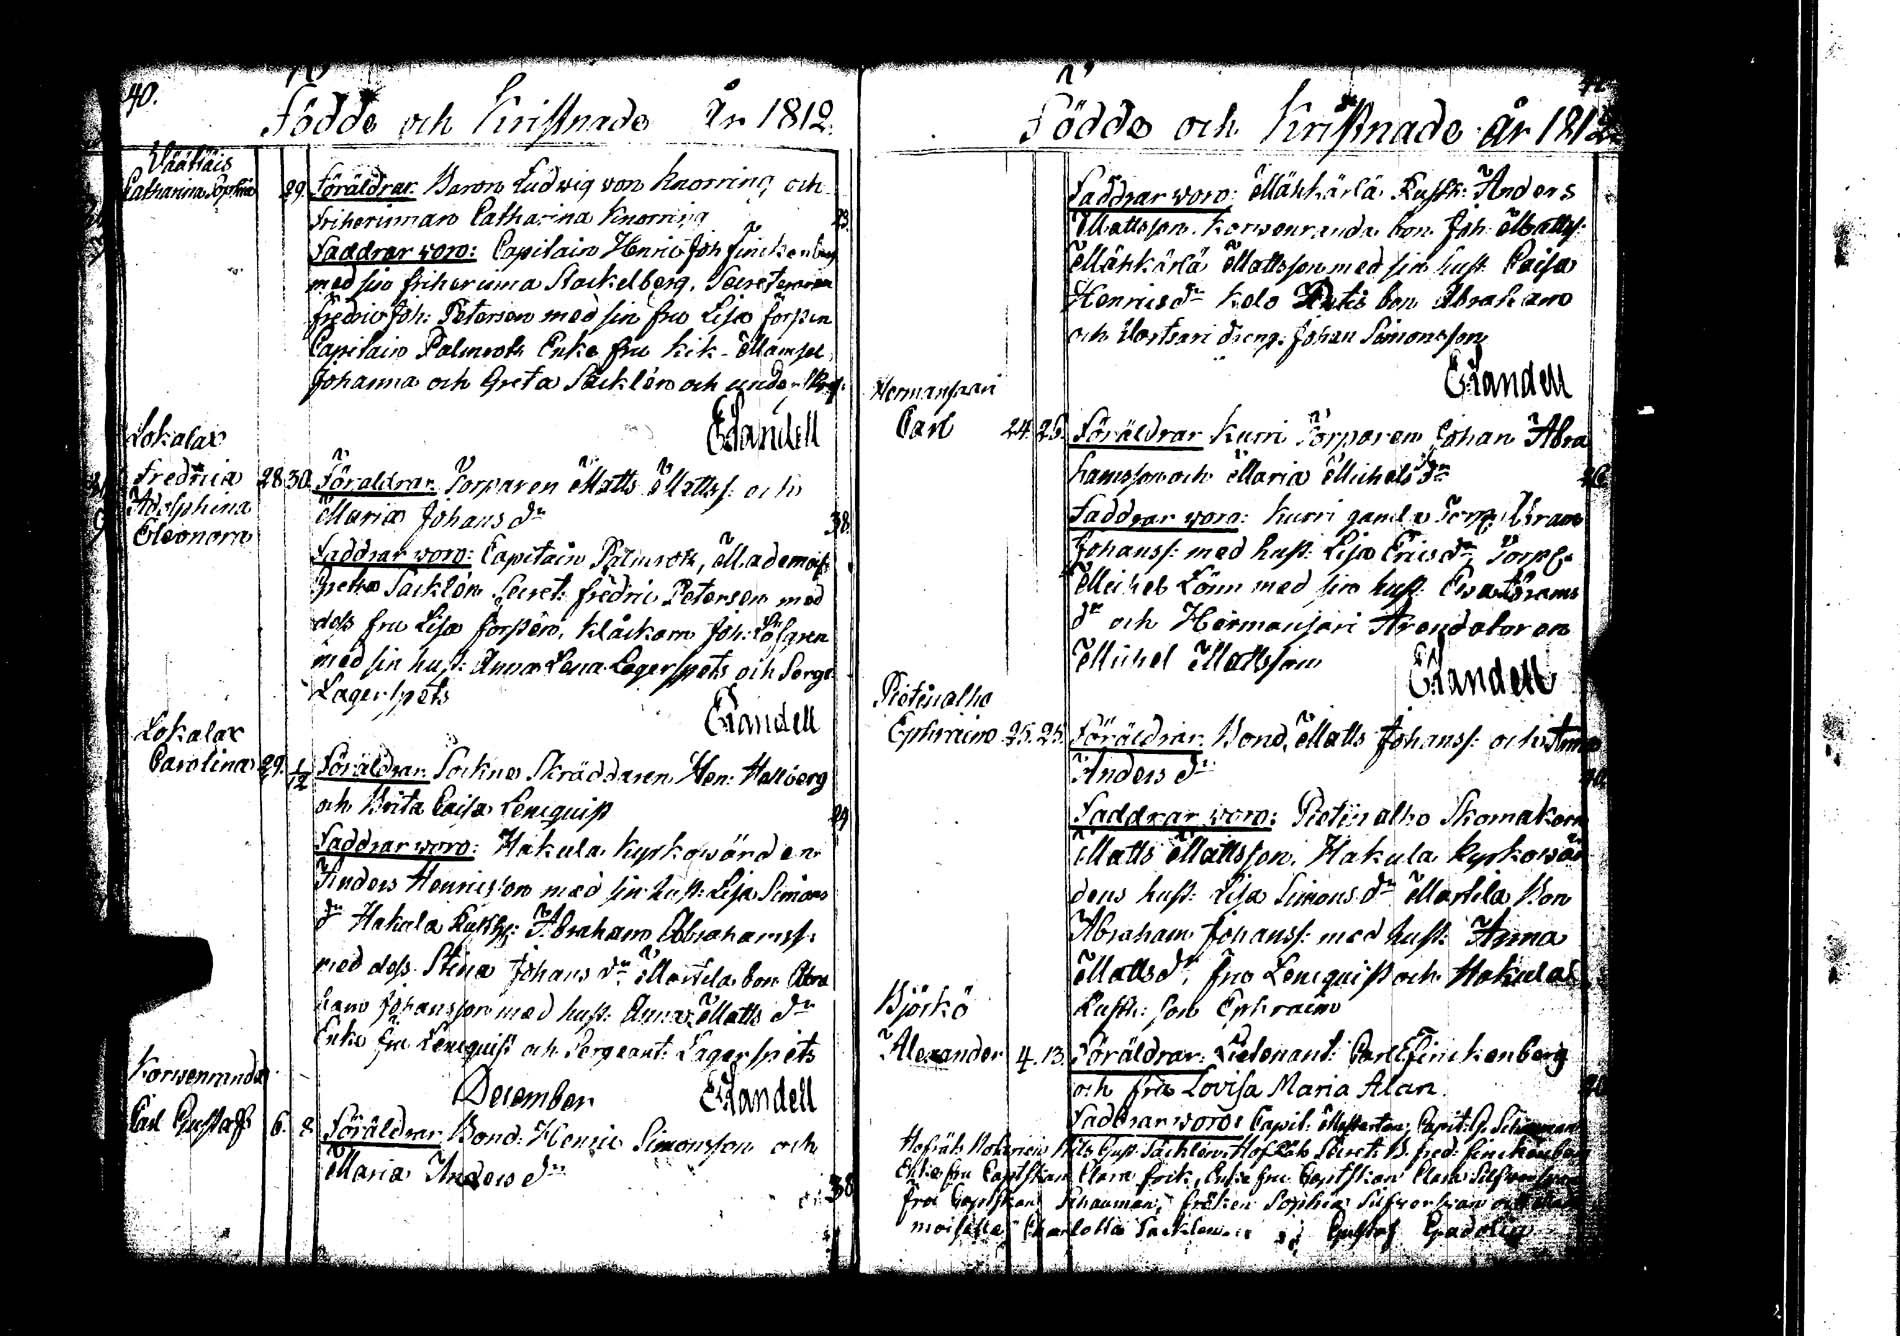 40.
Födde och Kristnade År 1812.
Väätäis
Catharina Sophia 29. Föräldrar Baron Ludwig von Knorring och
friherinnan Catharina Knorring 23.
Faddrar woro: Capitain Henric Joh Finckenberg
med sin friherinna Stackelberg, Secreteraren
Fredric Joh: Peterson med sin fru Lisa Forssen
Capitain Palmroth Enke fru Kik Mamsel
Johanna och Greta Sacklén och underskref:
E. Randell
Lokalax
Fredrica 28 30. Föräldrar Torparen Matts Mattss: och
Adolphina Maria Johans dr 38.
Eleonora
Faddrar woro: Capitain Palmroth, Mademois
Greta Sacklén Secret: Fredric Peterson med
dess fru Lisa Forssén, Klåckarn Joh: Löfgren
med sin hust: Anna Lena Lagerspets och Serge
Lagerspets
E. Randell
Lokalax
Carolina 29. 1/12 Föräldrar Sockne Skräddaren Hen: Hallberg
och Brita Caisa Lenequist 24
Faddrar woro: Hakula Kyrkowärden
Anders Henricsson med sin hust: Lisa Simons
dr Hakula Rusth: Abraham Abrahamss:
med dess Stina Johans dr Martila bon Abra
ham Johansson med hust: Anna Matts dr
Enke fru Lenequist och Sergeant: Lagerspets
December E. Randell
Korwenranda
Carl Gustaf 6. 8. Föräldrar Bond: Henric Simonsson och
Maria Anders dr 38
Födde och Kristnade år 1812.
Faddrar woro: Mänkärlä Rusth: Anders
Mattsson. Korwenranda bon. Joh: Mattss:
Mänkärlä Mattsson med sin hust: Caisa
Henrics dr Kelo bon Abraham
och Wartsari dreng: Johan Simonsson
E. Randell
Hermansaari
Carl 24. 25. Föräldrar Kurri Torparen Johan Abra
hamsson och Maria Michels dr 26
Faddrar woro: Kurri gamla Torp: Abram
Johanss: med hust: Lisa Erics dr, Torp:
Michel Lönn med sin hust: Ewa Abrams
dr och Hermansari Arendatoren
Michel Mattsson E. Randell
Pietinalho
Ephraim 25. 25. Föräldrar Bond, Matts Johanss: och Anna
Anders dr
Faddrar woro: Pietinalho Skomakarn
Matts Mattsson, Hakula Kyrkowär
dens hust: Lisa Simons dr Martila Bon
Abraham Johanss: med hust: Anna
Matts dr, fru Lenequist och Hakulas
Rusth: son Ephraim
Björkö
Alexander 4. 13. Föräldrar: Lieutenant: Carl E Finckenberg
och fru Lovisa Maria Alan.
Faddrar woro: Capit: Capit: G. Schauman
Hofräts Notarien Nils Gust Sacklén, Secret: B. Fred: Finckenberg
Enke fru Captskan Clara Frik, Enke fru Captskan Clara Silfwersvan
fru Captskan Schauman, fröken Sophia Silfwersvan och
moiselle Charlotta Sacklen. Gustaf Gadolin